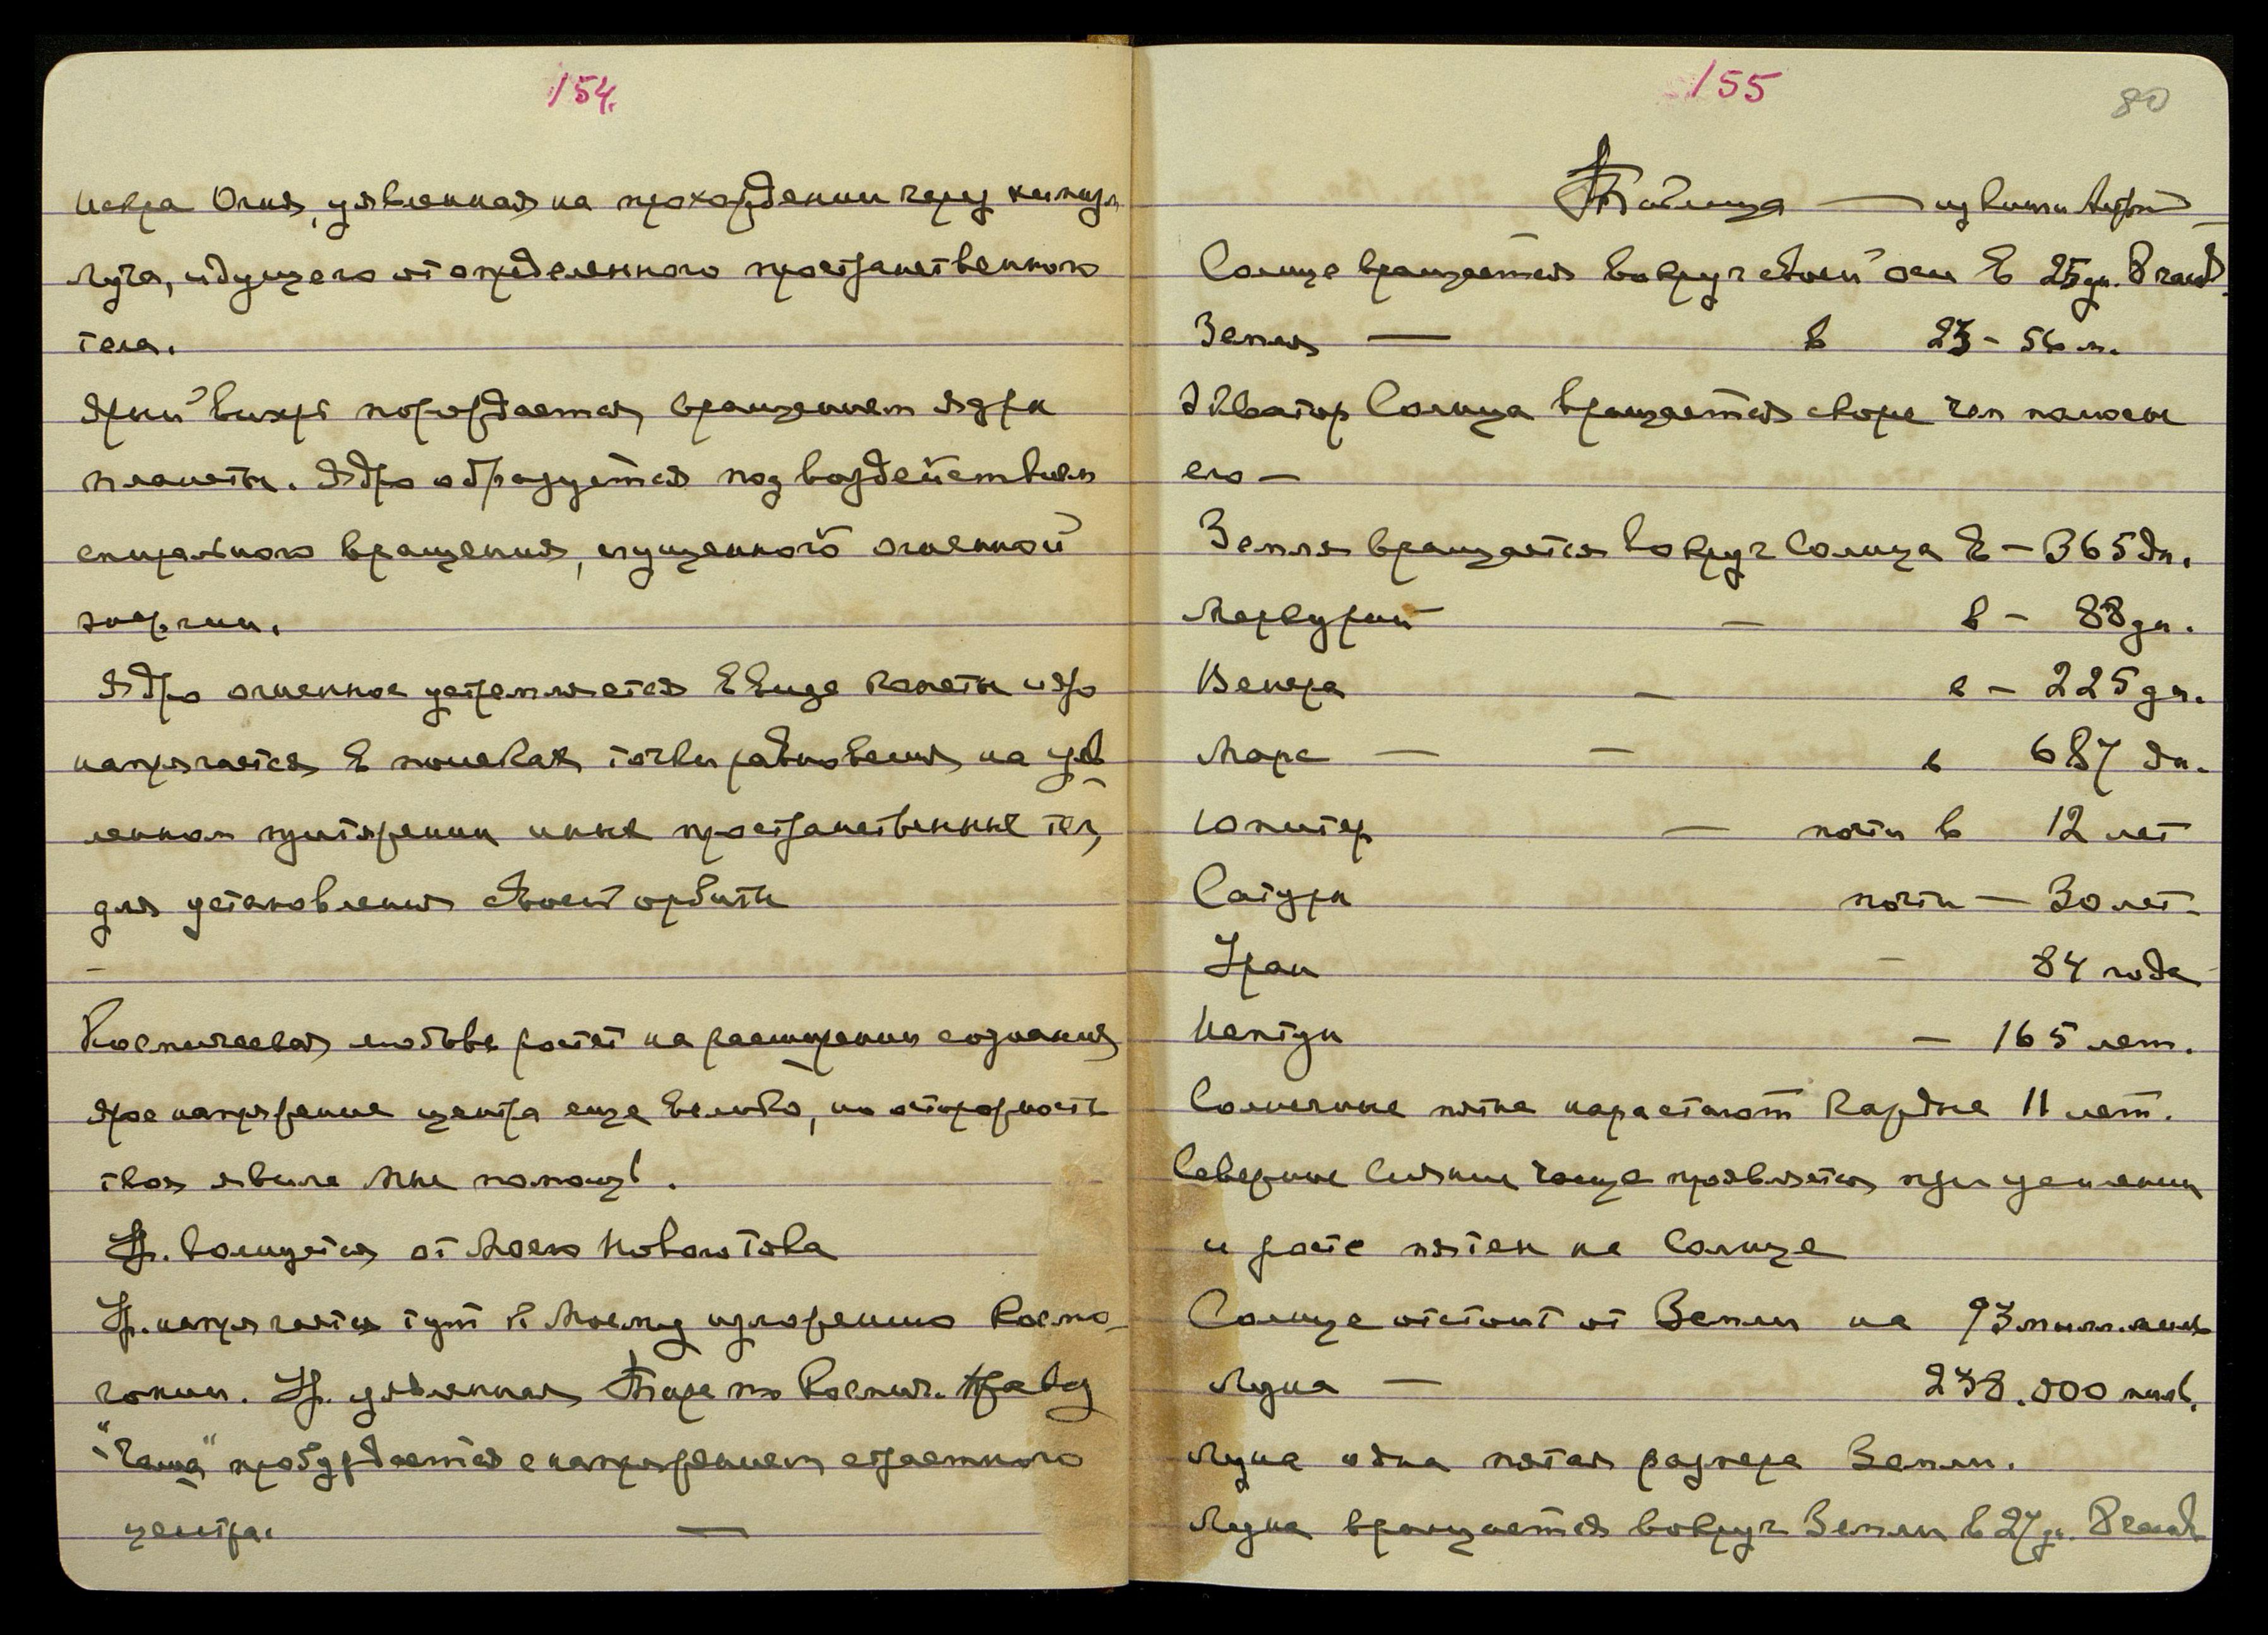 154.
искра Огня, уявленная на прохождении через
Луча, идущего от определенного пространственного
тела.
Ярый вихрь порождается вращением ядра
планеты. Ядро образуется под воздействием
спирального вращения, сгущенного огненной
энергии.
Ядро огненное устремляется в виде кометы и яро
напрягается в поисках точки равновесия на уяв
ленном притяжении иных пространственных тел,
для установления своей орбиты
–
Космическая любовь растет на расширении сознания
ярое напряжение центра еще велико, но осторожность
твоя явила Мне помощь.
Ур. волнуется от Моего Нового
Ур. напрягается тут к Моему изложению Космо-
гонии. Ур. уявленная Таре по Космич. праву
"Чаша" пробуждается с напряжением
центра. —
155
80
Таблица — из книги
Солнце вращается вокруг своей оси в 25 дн. 8 часов
Земля — в 23 – 56 м.
Экватор Солнца вращается скорее чем полюсы
его –
Земля вращается вокруг Солнца в – 365 дн.
Меркурий – в – 88 дн.
Венера – в – 225 дн.
Марс — – в 687 дн.
Юпитер — почти в 12 лет
Сатурн почти — 30 лет.
Уран – 84 года
Нептун – 165 лет.
Солнечные пятна нарастают каждые 11 лет.
Северные Сияния чаще проявляются при усилении
и росте пятен на Солнце
Солнце отстоит от Земли на 93
Луна — 238.000 миль.
Луна одна пятая размера Земли.
Луна вращается вокруг Земли в 27 дн. 8 часов